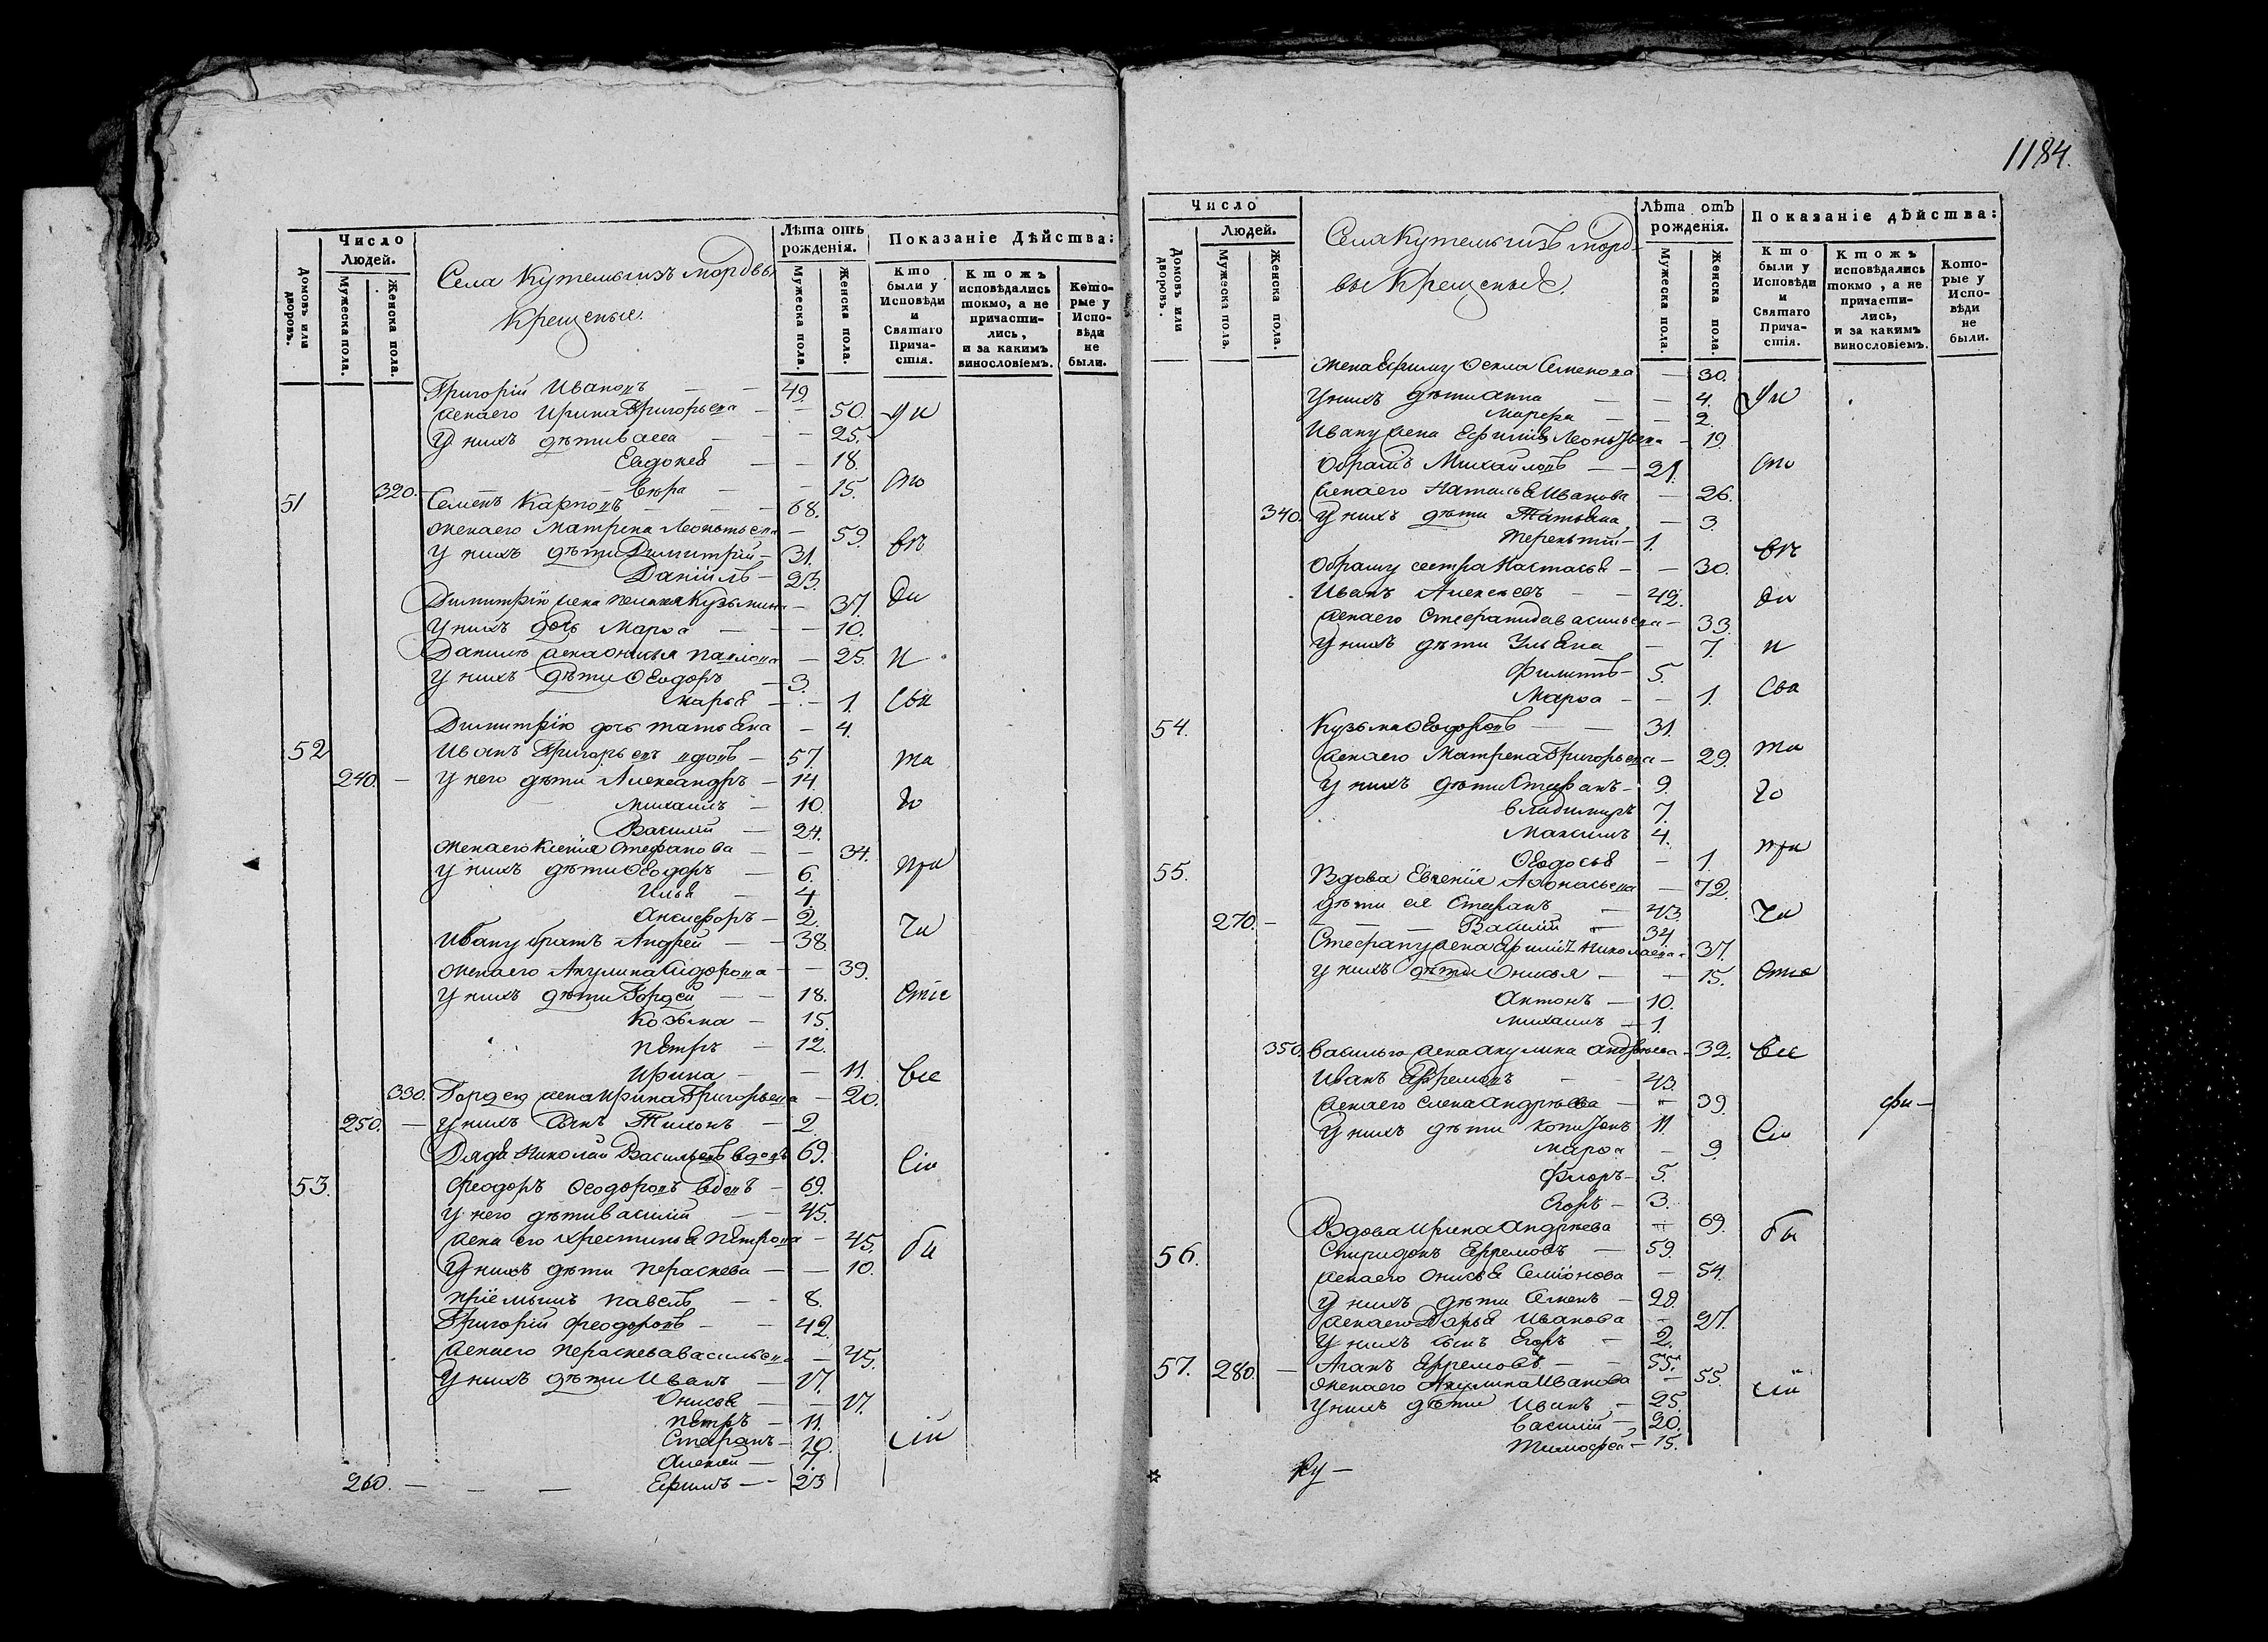 Число
Людей.
Домовъ или дворовъ.
Мужеска пола.
Женска пола.
Села Кутемьгизъ мордвы
Крещеные.
Лѣта отъ рожденія.
Мужеска пола.
Женска пола.
Показаніе Дѣйства:
Кто были у Исповѣди и Святаго Причастія.
Ктожъ исповѣдались токмо, а не причастились, и за какимъ винословіемъ.
Которые у Исповѣди не были.
Григорій Ивановъ — — 49.
Женаего Ирина Григорьева — — 50. Ѱи
У нихъ дѣти васса — — 25.
Евдокея — — 18.
320. Ѳекра — — 15. сто
51 Семенъ Карповъ — — 68.
Женаего Матрена Леонтьева — 59. въ
У нихъ дѣти Димитрій — 31.
Даніилъ — 23.
Димитрію жена пелагея Кузьмина — 37. ди
У нихъ дочь Марѳа — — 10.
Данилѣ жена онисья павлова — 25. и
У нихъ дѣти Ѳеодоръ — 3.
Марья — — 1. свя
Димитрію дочь татьяна — 4.
52 Иванъ Григорьевъ вдовъ — 57. та
240. — У него дѣти Александръ — 14.
Михаилъ — 10. го
Василій — 24.
Женаего Ксенія Стефанова — — 34.
У нихъ дѣти Ѳеодоръ — 6. при
Илья — 4
Анисифоръ — 2.
Ивану братъ Андрей — — 38 ча
Женаего Акулина Сидорова — — 39.
У нихъ дѣти Гордей — — 18. стіе
Козьма — 15.
Петръ — 12.
Ирина — — 11. все
330. Гордею жена Ирина Григорьева — 20.
250. — У нихъ сынъ Тихонъ — 2.
Дядя Николай Васильевъ вдовъ 69. сіи
53. Феодоръ Ѳеодоровъ вдовъ — 69.
У него дѣти василій — — 45.
Жена его Хрестинья Петрова — 45. бы
У нихъ дѣти Пераскева — — 10.
Пріемышъ Павелъ — — 8.
Григорій Феодоровъ — — 42.
Женаего Пераскева васильева — 45.
У нихъ дѣти Иванъ — 17.
Онисья — — 17.
Петръ — 11.
Стефанъ — 10. сіи
Алексѣй — 7.
260. — — — Ефимъ — — 23
1184.
Число
Людей.
Домовъ или дворовъ.
Мужеска пола.
Женска пола.
Села Кутемьгизъ морд-
вы Крещеные.
Лѣта отъ рожденія.
Мужеска пола.
Женска пола.
Показаніе дѣйства:
Кто были у Исповѣди и Святаго Причастія.
Ктожъ исповѣдались токмо, а не причастились, и за какимъ винословіемъ.
Которые у Исповѣди не были.
Жена Ефиму Ѳекла Семенова — 30.
У нихъ дѣти анна — — 4. Ѱи
Марѳа — — 2.
Ивану жена Ефимія Леонтьева — 19.
Обрамъ Михайловъ — — 21. сто
Женаего Наталья Иванова — 26.
340. У нихъ дѣти Татьяна, — 3.
Терентій — 1. въ
Обраму сестра Настасья — — 30.
Иванъ Алексѣевъ — — 42. ди
Женаего Стефанида васильева — 33.
У нихъ дѣти Ульяна — 7. и
Филиппъ — 5.
Марѳа — — 1. свя
54. Кузьма Ѳеодоровъ — — 31.
Женаего Матрена Григорьева — 29. та
У нихъ дѣти Стефанъ — 9.
Владимиръ 7. го
Максимъ 4.
Ѳеодосья — 1. при
55. Вдова Евгенія Аѳонасьева — 72.
дѣти ея Стефанъ — 43 ча
270. — — — Василій — 34
Стефану жена Ефимія Николаева — 37.
У нихъ дѣти Онисья — — 15. стіе
Антонъ — 10.
Михаилъ — 1.
350. Василью жена акулина андреева — 32. все
Иванъ Ефремовъ — — 43.
Женаего Елена андреева — — 39.
У нихъ дѣти 11. сіи
Марѳа — 9.
Флоръ — 5.
Егоръ — 3.
Вдова Ирина Андреева — 69. бы
56. Спиридонъ Ефремовъ — 59.
Женаего Онисья Семіонова — 54.
У нихъ дѣти Семенъ — 28.
Женаего Дарья Иванова — 27.
У нихъ сынъ Егоръ — 2.
57. 280. — Агапъ Ефремовъ — — 55.
Женаего Акулина Иванова — 55. сіи
У нихъ дѣти Иванъ — 25.
Василій — 20.
Тимофей — 15.
ку —